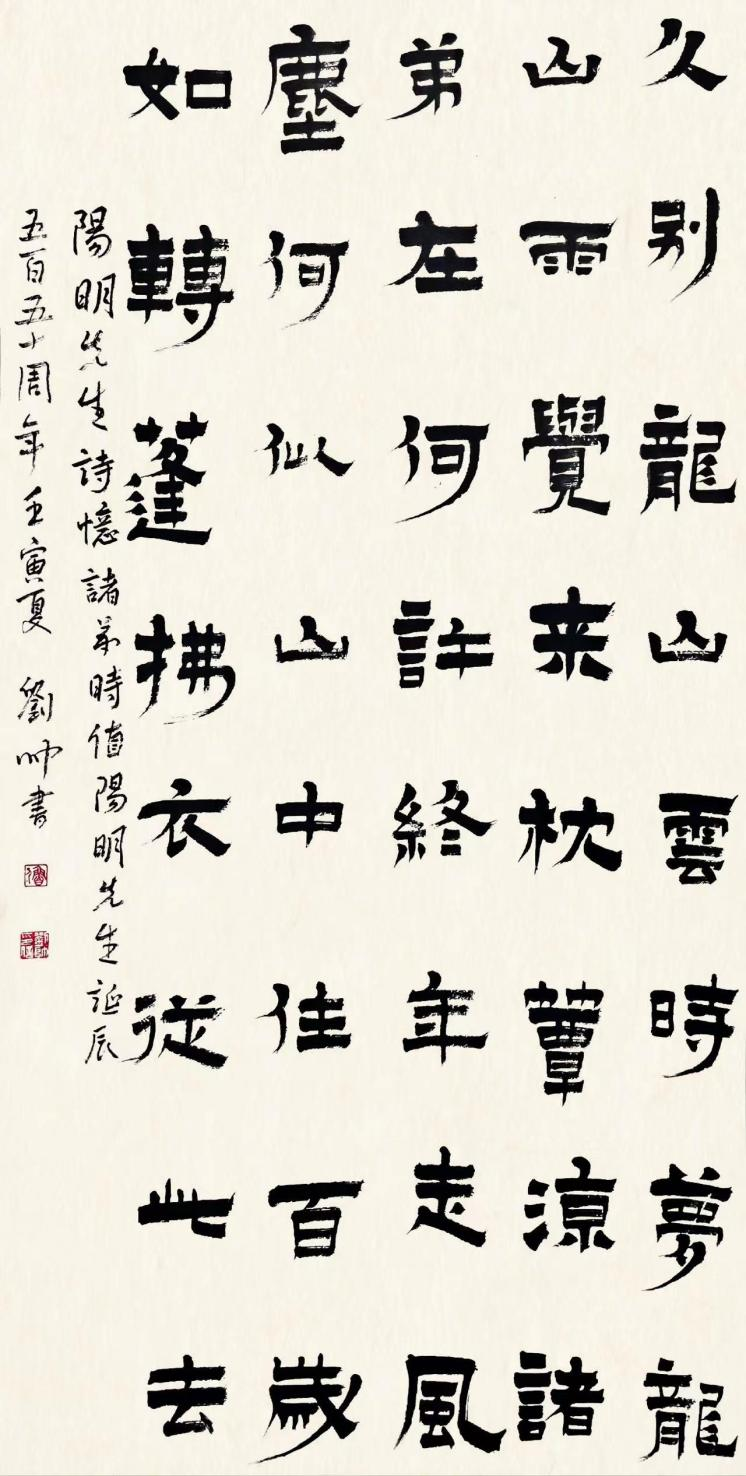 久别龍山雲時夢龍
山雨覺来枕簟涼諸
弟在何許終年走風
塵何似山中住百歲
如轉蓬拂衣從此去
陽明先生詩憶諸弟時值陽明先生誕辰
五百五十周年壬寅夏劉帥書